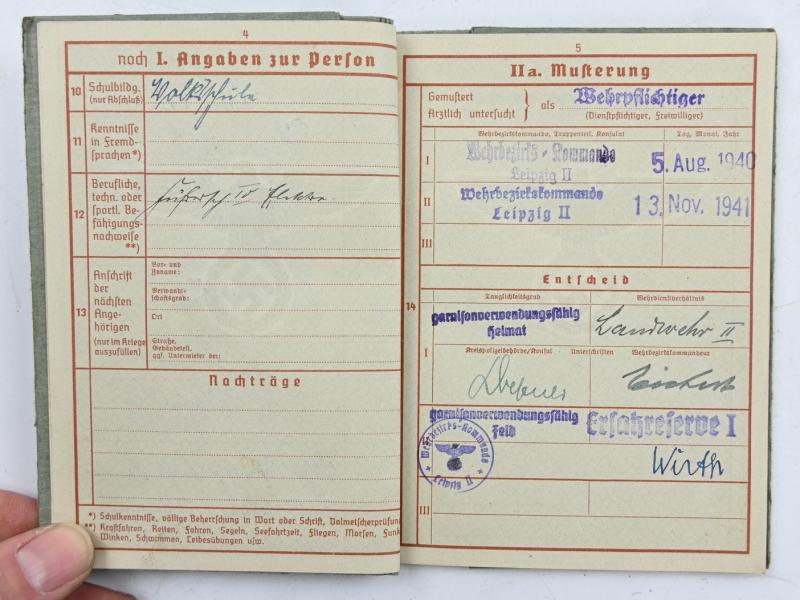 4
noch I. Angaben zur Person
10 Schulbildg. (nur Abschluß)
Volksschule
11 Kenntnisse in Fremdsprachen*)
12 Berufliche, techn. oder sportl. Befähigungsnachweise **)
Führersch IV Elektro
13 Anschrift der nächsten Angehörigen (nur im Kriege auszufüllen)
Vor- und Zuname:
Verwandtschaftsgrad:
Ort
Straße, Gebäudeteil, ggf. Untermieter bei:
Nachträge
*) Schulkenntnisse, völlige Beherrschung in Wort oder Schrift, Dolmetscherprüfun
**) Kraftfahren, Reiten, Fahren, Segeln, Seefahrtzeit, Fliegen, Morsen, Funk
Winken, Schwimmen, Leibesübungen usw.
5
IIa. Musterung
Gemustert
Ärztlich untersucht } als Wehrpflichtiger
(Dienstpflichtiger, Freiwilliger)
Wehrbezirkskommando, Truppenteil, Konsulat
Tag, Monat, Jahr
I Wehrbezirks-Kommando
Leipzig II
5. Aug. 1940
II Wehrbezirkskommando
Leipzig II
13. Nov. 1941
III
Entscheid
14
Tauglichkeitsgrad
Wehrdienstverhältnis
garnisonverwendungsfähig
Heimat
Landwehr II
I
Kreispolizeibehörde/Konsul Unterschriften Wehrbezirkskommandeur
garnisonverwendungsfähig
Feld
Ersatzreserve I
Wehrbezirks-Kommando
Leipzig II
Wirth
III